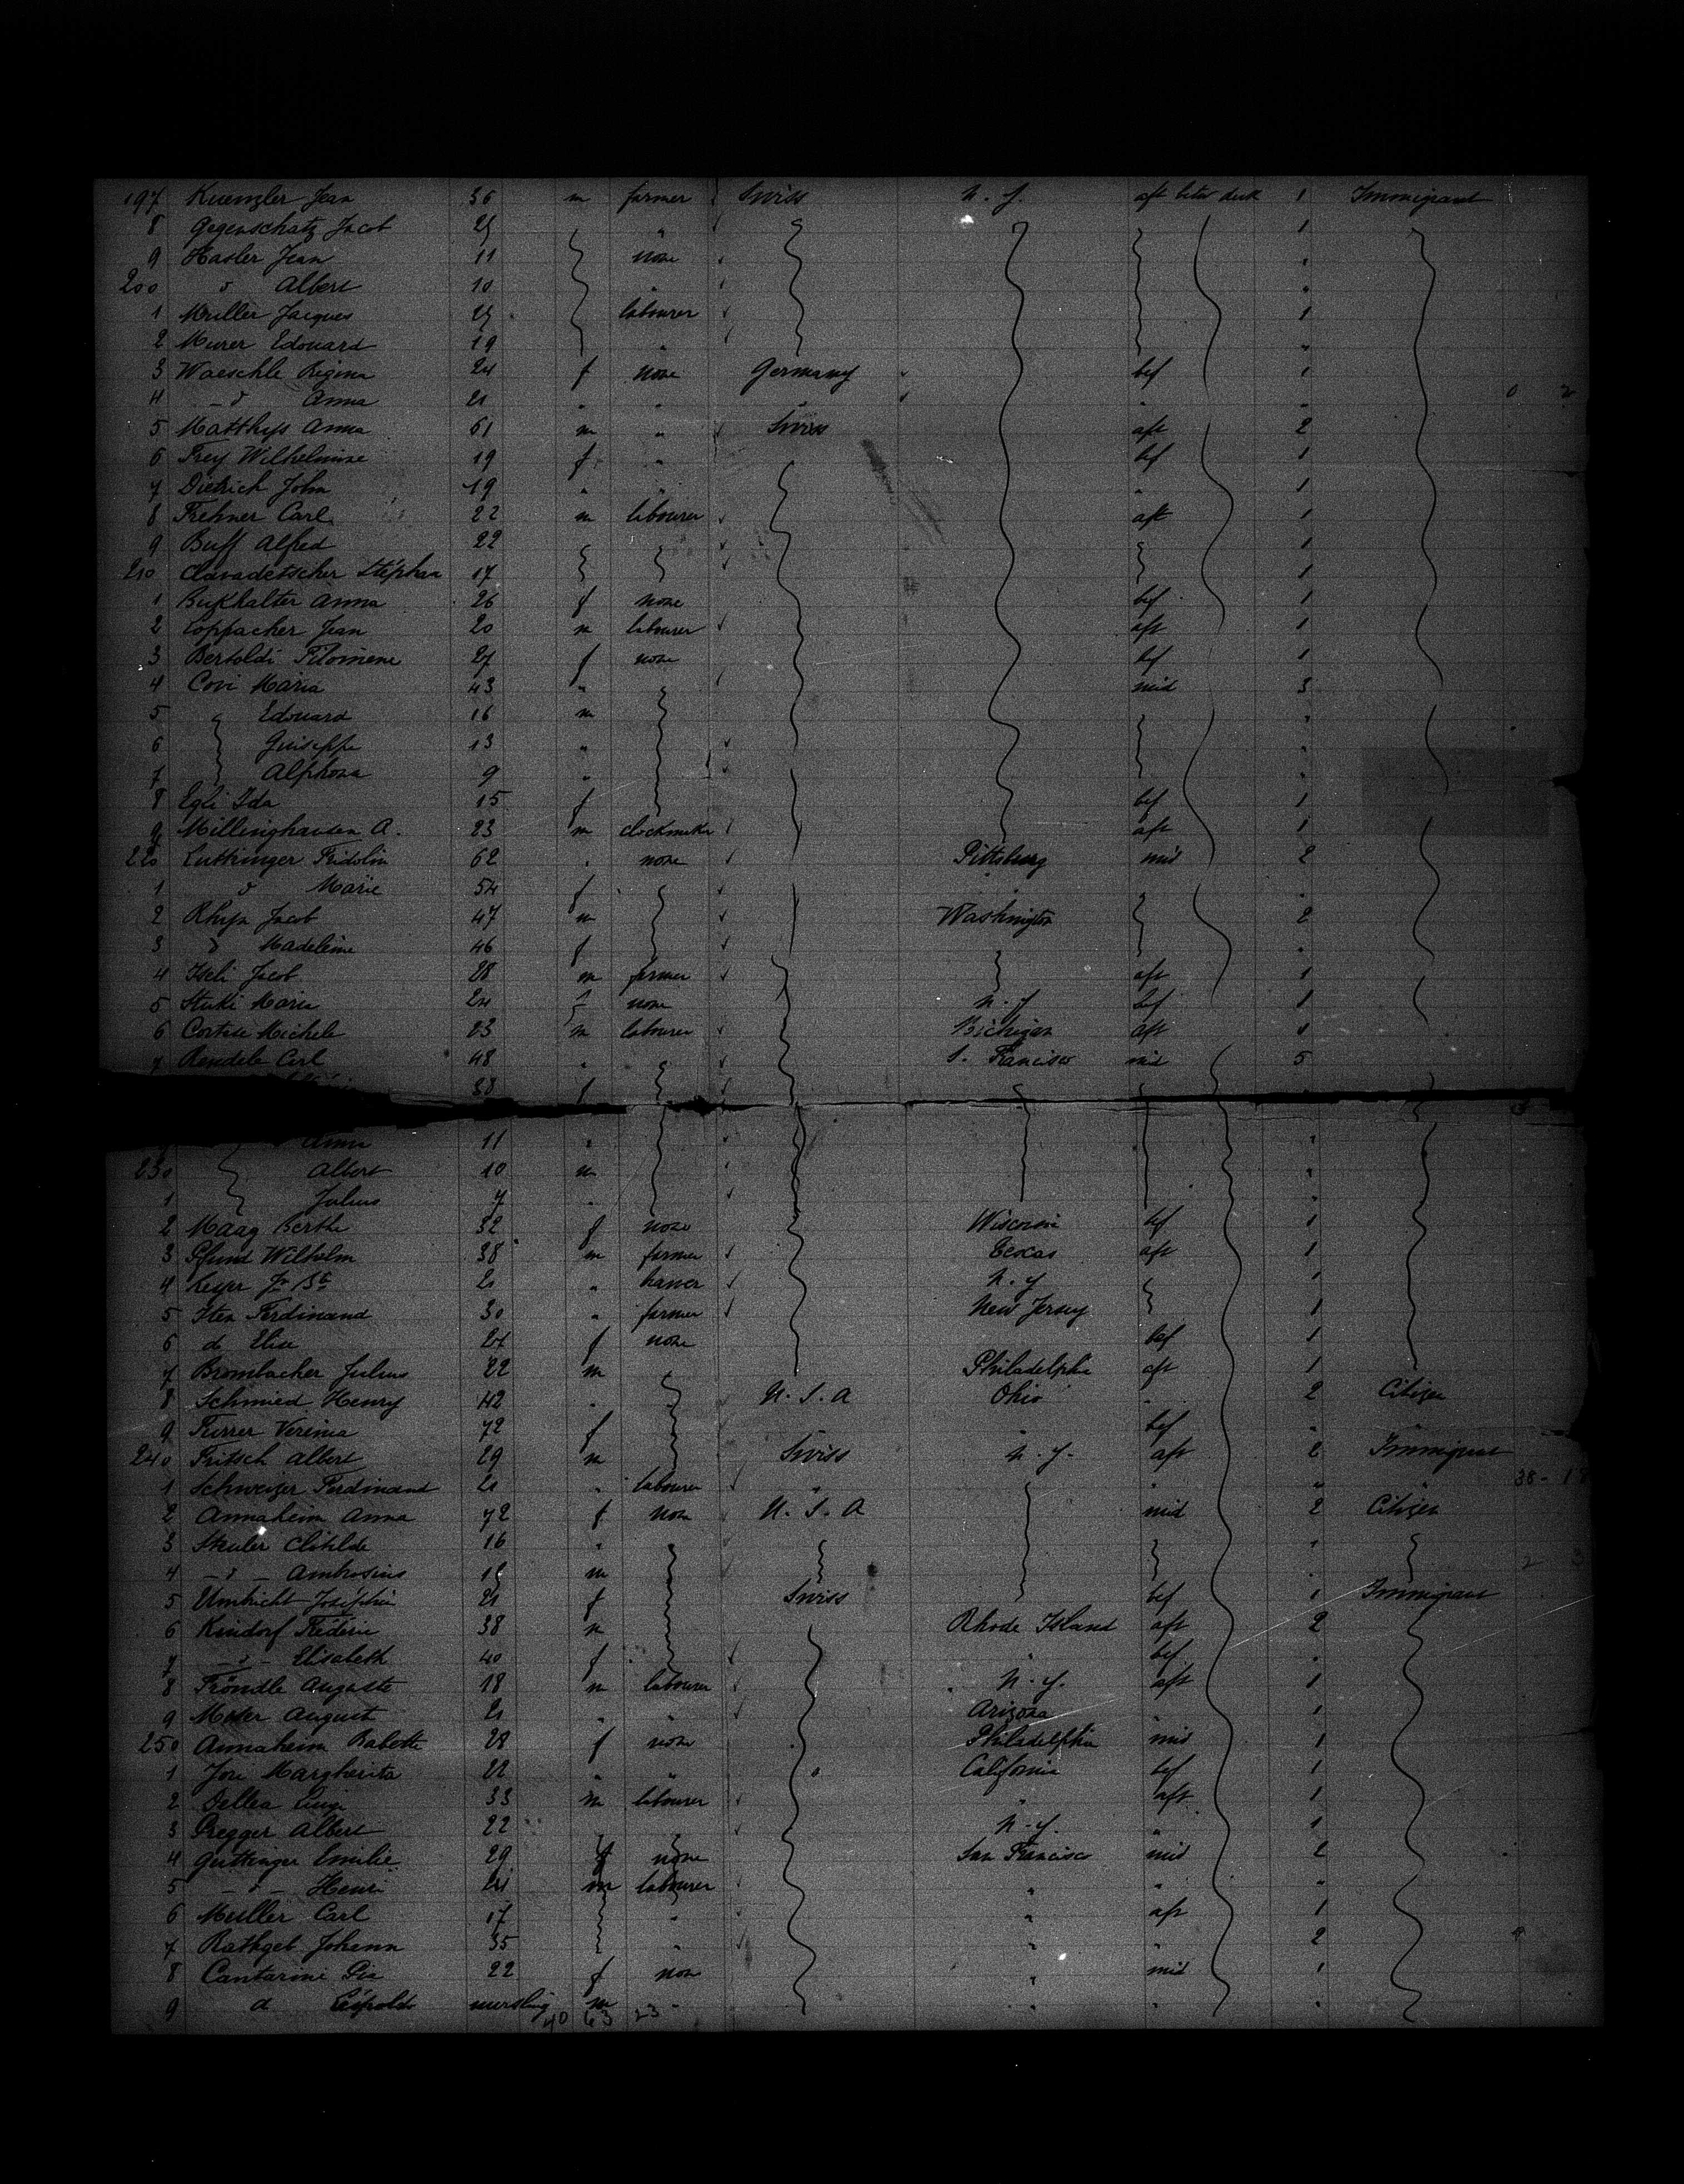 197 Kuenzler Jean 36 m farmer Swiss N. Y. aft betw deck 1 Immigrant
8 Gegenschatz Jacob 25 " 1
9 Hasler Jean 11 none "
200 d Albert 10 " "
1 Muller Jacques 25 labourer 1
2 Murer Edouard 19 " "
3 Waeschle Regina 24 f none Germany bef 1
4 - d Anna 21 " " " " " 0 2
5 Matthys Anna 61 m " Swiss aft 2
6 Frey Wilhelmine 19 f " bef 1
7 Dietrich John 19 " " " 1
8 Frehner Carl 22 m labourer aft 1
9 Buff Alfred 22 1
210 Clavadetscher Stéphan 17 1
1 Burkhalter Anna 26 f none bef 1
2 Coppacher Jean 20 m labourer aft 1
3 Bertoldi Filomene 27 f none bef 1
4 Covi Maria 43 " mid 3
5 Edouard 16 m "
6 Guiseppe 13 " "
7 Alphonsa 9 " "
8 Egli Ida 15 f bef 1
9 Millinghausen A. 23 m clockmaker aft 1
220 Luttringer Fridolin 62 " none Pittsburg mid 2
1 d Marie 54 f " "
2 Rhyn Jacob 47 m Washington 2
3 d Madeleine 46 f "
4 Iseli Jacob 28 m farmer aft 1
5 Stuki Maria 24 f none N. Y bef 1
6 Cortese Michele 23 m labourer Michigan aft 1
7 Rendele Carl 48 " S. Francisco mid 5
38 f
Anna 11 " "
230 Albert 10 m "
1 Julius 7 " "
2 Maag Berthe 32 f none Wisconsin bef 1
3 Pfund Wilhelm 38 m farmer Texas aft 1
4 Keyer 21 " N. Y 1
5 Iten Ferdinand 30 " farmer New Jersey 1
6 d Elise 24 f none bef 1
7 Brombacher Julius 22 m Philadelphia aft 1
8 Schmied Henry 42 " U. S. A Ohio " 2 Citizen
9 Furrer Verenia 72 f bef "
240 Fritsch Albert 29 m Swiss N. Y. aft 2 Immigrant
1 Schweizer Ferdinand 21 " labourer " " " " 38-18
2 Annaheim Anna 72 f none U. S. A mid 2 Citizen
3 Steuler Clotilde 16 " "
4 - d - Ambrosius m " 2
5 Umbricht Joséphine 21 f Swiss bef 1 Immigrant
6 Kindorf Frédéric 38 m Rhode Island aft 2
7 - d - Elisabeth 40 f " bef "
8 Tröndle Auguste 18 m labourer N. Y. aft 1
9 Meier August 21 " " Arizona " 1
250 Annaheim Babette 28 f none Philadelphia mid 1
1 Jori Margherita 22 " " California bef 1
2 Dellea Luigi 33 m labourer " aft 1
3 Pregger Albert 22 N. Y. " 1
4 Guttinger Emilie 29 f none San Francisco mid 2
5 - d - Henri m labourer " " "
6 Muller Carl 17 " " aft 1
7 Rathgeb Johann 35 " " " 2
8 Cantarini Pia 22 f none " mid 1
9 d Léopoldo nursling m " " " "
40 63 23